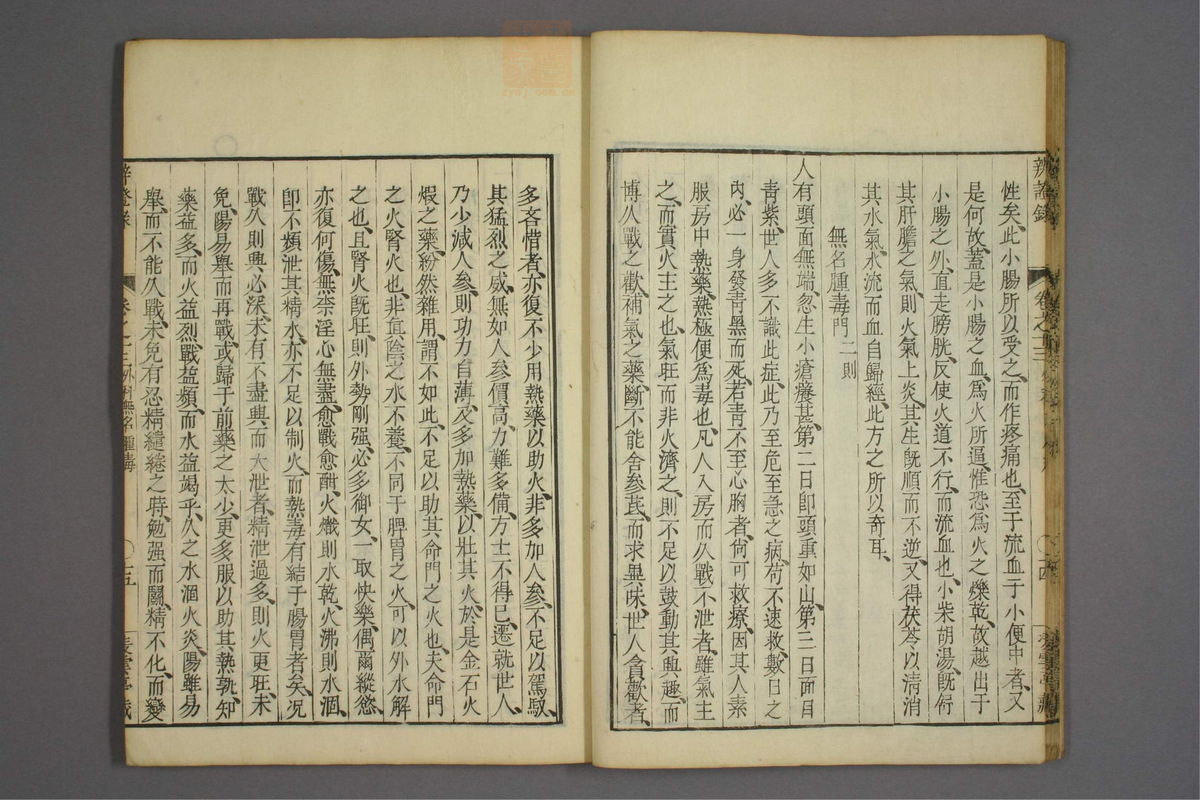 辨證錄
卷之十三
性矣、此小腸所以受之、而作疼痛也、至于流血于小便中者、又
是何故、蓋是小腸之血、爲火所逼、惟恐爲火之爍乾、故越出于
小腸之外、直走膀胱、反使火道不行、而流血也、小柴胡湯、旣衍
其肝膽之氣、則火氣上炎、其生旣順而不逆、又得茯苓以淸消
其水氣、水流而血自歸經、此方之所以奇耳、
無名腫毒門二則
人有頭面無端、忽生小瘡、癢甚、第二日卽頭重如山、第三日面目
靑紫、世人多不識此症、此乃至危至急之病、苟不速救、數日之
內、必一身發靑黑而死、若靑不至心胸者、尙可救療、因其人素
服房中熱藥、熱極便爲毒也、凡人入房而久戰不泄者、雖氣主
之、而實火主之也、氣旺而非火濟之、則不足以鼓動其興趣、而
博久戰之歡、補氣之藥、斷不能舍參芪、而求異味、世人貪歡者、
多吝惜者亦復不少、用熱藥以助火、非多加人參、不足以駕馭
其猛烈之威、無如人參價高、力難多備、方士不得已、遷就世人、
乃少減人參、則功力自薄、及多加熱藥、以壯其火、於是金石火
煆之藥、紛然雜用、謂不如此、不足以助其命門之火也、夫命門
之火腎火也、非眞陰之水不養、不同于脾胃之火、可以外水解
之也、且腎火旣旺、則外勢剛强、必多御女、一取快樂、偶爾縱慾
亦復何傷、無柰淫心無盡、愈戰愈酣、火熾則水乾、火沸則水涸、
卽不頻泄其精水、亦不足以制火、而熱毒有結于腸胃者矣、况
戰久則興必深、未有不盡興而大泄者、精泄過多、則火更旺、未
免陽易舉而再戰、或歸于前藥之太少、更多服以助其熱、孰知
藥益多、而火益烈、戰益頻、而水益竭乎、久之水涸火炎、陽雖易
舉、而不能久戰、未免有忍精繾綣之時、勉强而鬭、精不化、而變
卷之十三外科無名腫毒